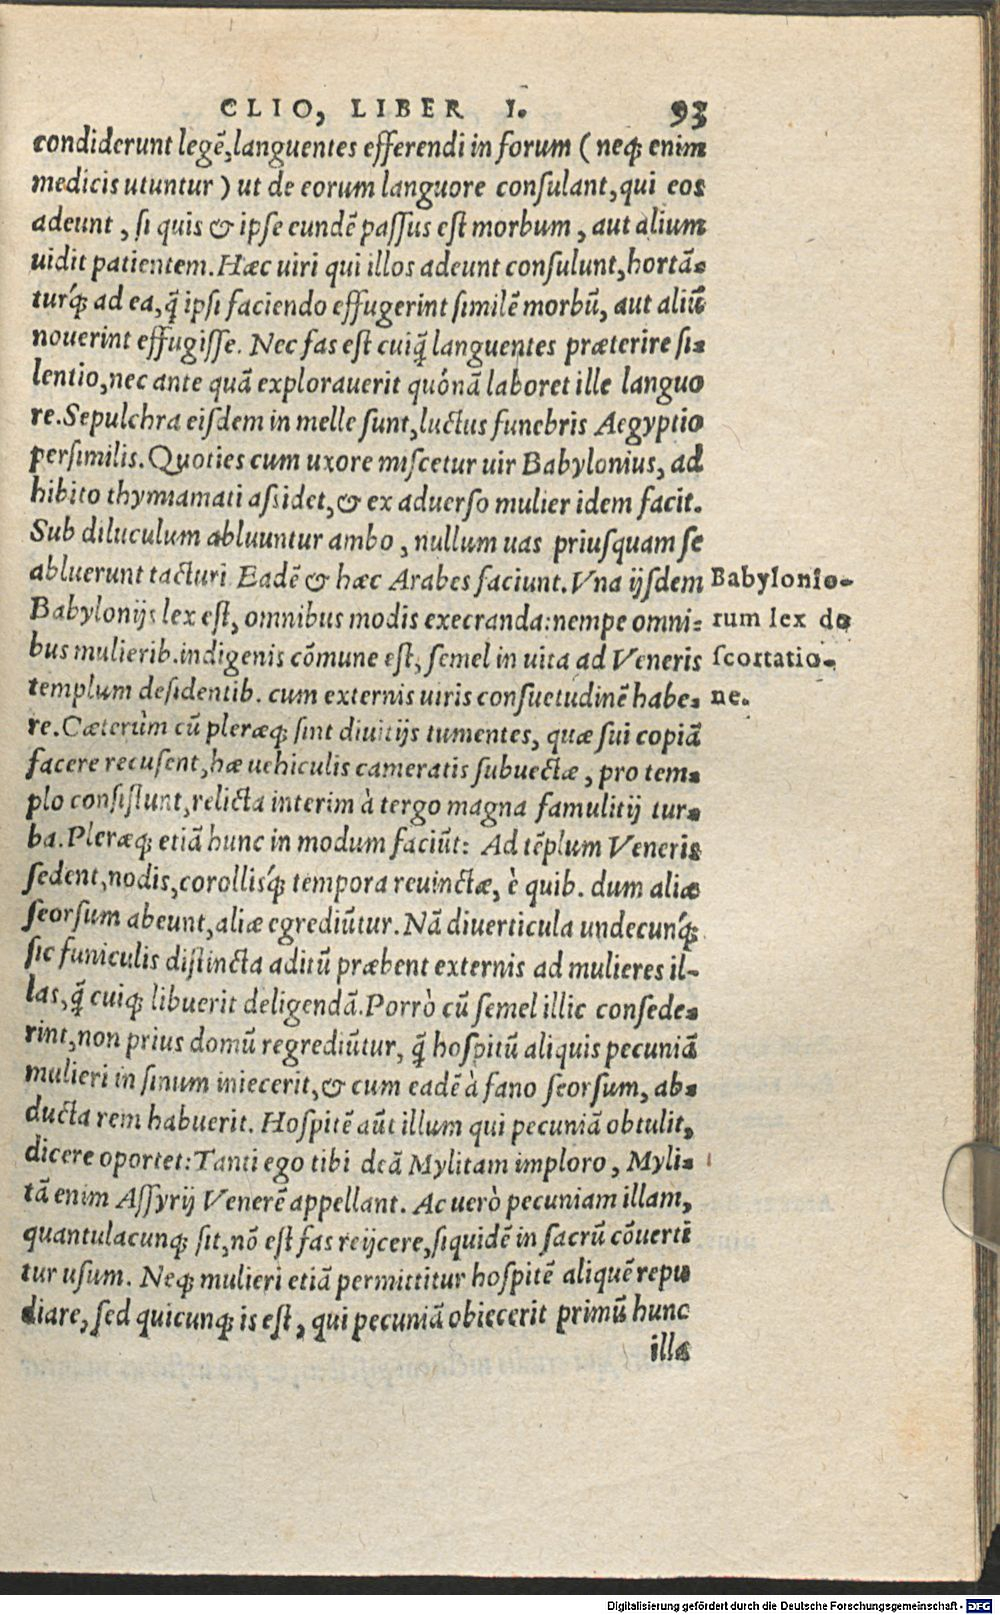 CLIO, LIBER I. 93
condiderunt legẽ, languentes efferendi in forum ( neq; enim
medicis utuntur ) ut de eorum languore consulant, qui eos
adeunt, si quis & ipse eundẽ passus est morbum, aut alium
uidit patientem. Hæc uiri qui illos adeunt consulunt, hortã-
turq́; ad ea, q̃ ipsi faciendo effugerint similẽ morbũ, aut aliũ
nouerint effugisse. Nec fas est cuiq̃ languentes præterire si-
lentio, nec ante quã explorauerit quónã laboret ille languo
re. Sepulchra eisdem in melle sunt, luctus funebris Aegyptio
persimilis. Quoties cum uxore miscetur uir Babylonius, ad
hibito thymiamati assidet, & ex aduerso mulier idem facit.
Sub diluculum abluuntur ambo, nullum uas priusquam se
abluerunt tacturi Eadẽ & hæc Arabes faciunt. Vna ijsdem
Babylonijs lex est, omnibus modis execranda: nempe omni-
bus mulierib. indigenis cõmune est, semel in uita ad Veneris
templum desidentib. cum externis uiris consuetudinẽ habe-
re. Cæterùm cũ pleræq; sint diuitijs tumentes, quæ sui copiã
facere recusent, hæ uehiculis cameratis subuectæ, pro tem-
plo consistunt, relicta interim à tergo magna famulitij tur-
ba. Pleræq; etiã hunc in modum faciũt: Ad tẽplum Veneris
sedent, nodis, corollisq́; tempora reuinctæ, è quib. dum aliæ
seorsum abeunt, aliæ egrediũtur. Nã diuerticula undecunq́;
sic funiculis distincta aditũ præbent externis ad mulieres il-
las, q̃ cuiq; libuerit deligendã. Porrò cũ semel illic consede-
rint, non prius domũ regrediũtur, q̃ hospitũ aliquis pecuniã
mulieri in sinum iniecerit, & cum eadẽ à fano seorsum, ab-
ducta rem habuerit. Hospitẽ aũt illum qui pecuniã obtulit,
dicere oportet: Tanti ego tibi deã Mylitam imploro, Myli-
tã enim Assyrij Venerẽ appellant. Ac uerò pecuniam illam,
quantulacunq; sit, nõ est fas reijcere, siquidẽ in sacrũ cõuerti
tur usum. Neq; mulieri etiã permittitur hospitẽ aliquẽ repu
diare, sed quicunq; is est, qui pecuniã obiecerit primũ hunc
illa
Babylonio-
rum lex de
scortatio-
ne.
Digitalisierung gefördert durch die Deutsche Forschungsgemeinschaft - DFG